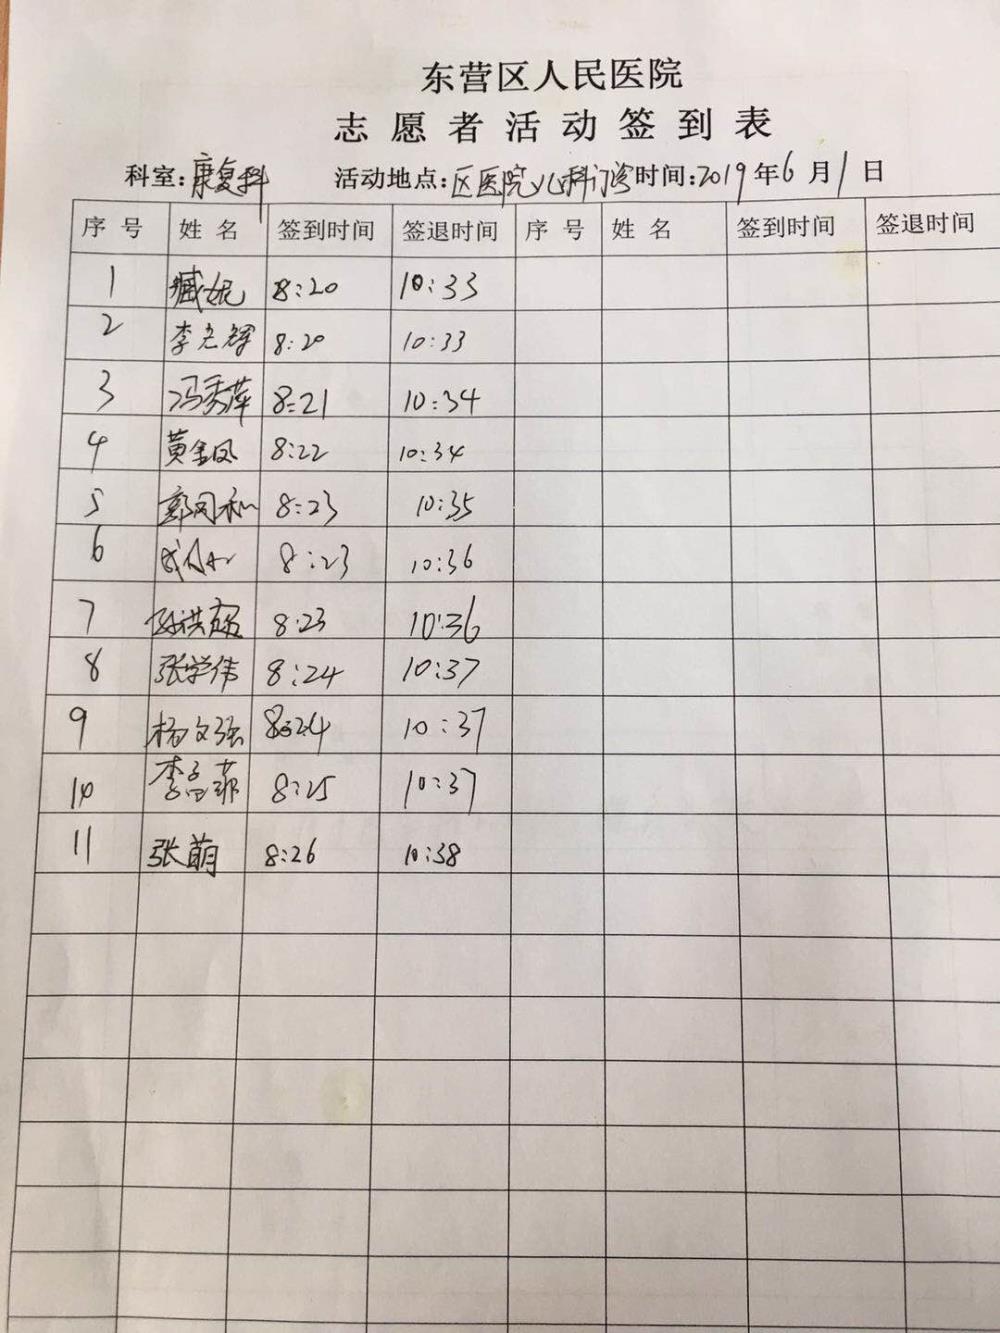 东营区人民医院
志愿者活动签到表
科室:康复科 活动地点:区医院儿科门诊 时间:2019年6月1日
序号 姓名 签到时间 签退时间 序号 姓名 签到时间 签退时间
1 臧妮 8:20 10:33
2 李光辉 8:20 10:33
3 冯秀萍 8:21 10:34
4 黄金凤 8:22 10:34
5 8:23 10:35
6 8:23 10:36
7 8:23 10:36
8 张学伟 8:24 10:37
9 杨文强 8:24 10:37
10 李 菲 8:25 10:37
11 张萌 8:26 10:38